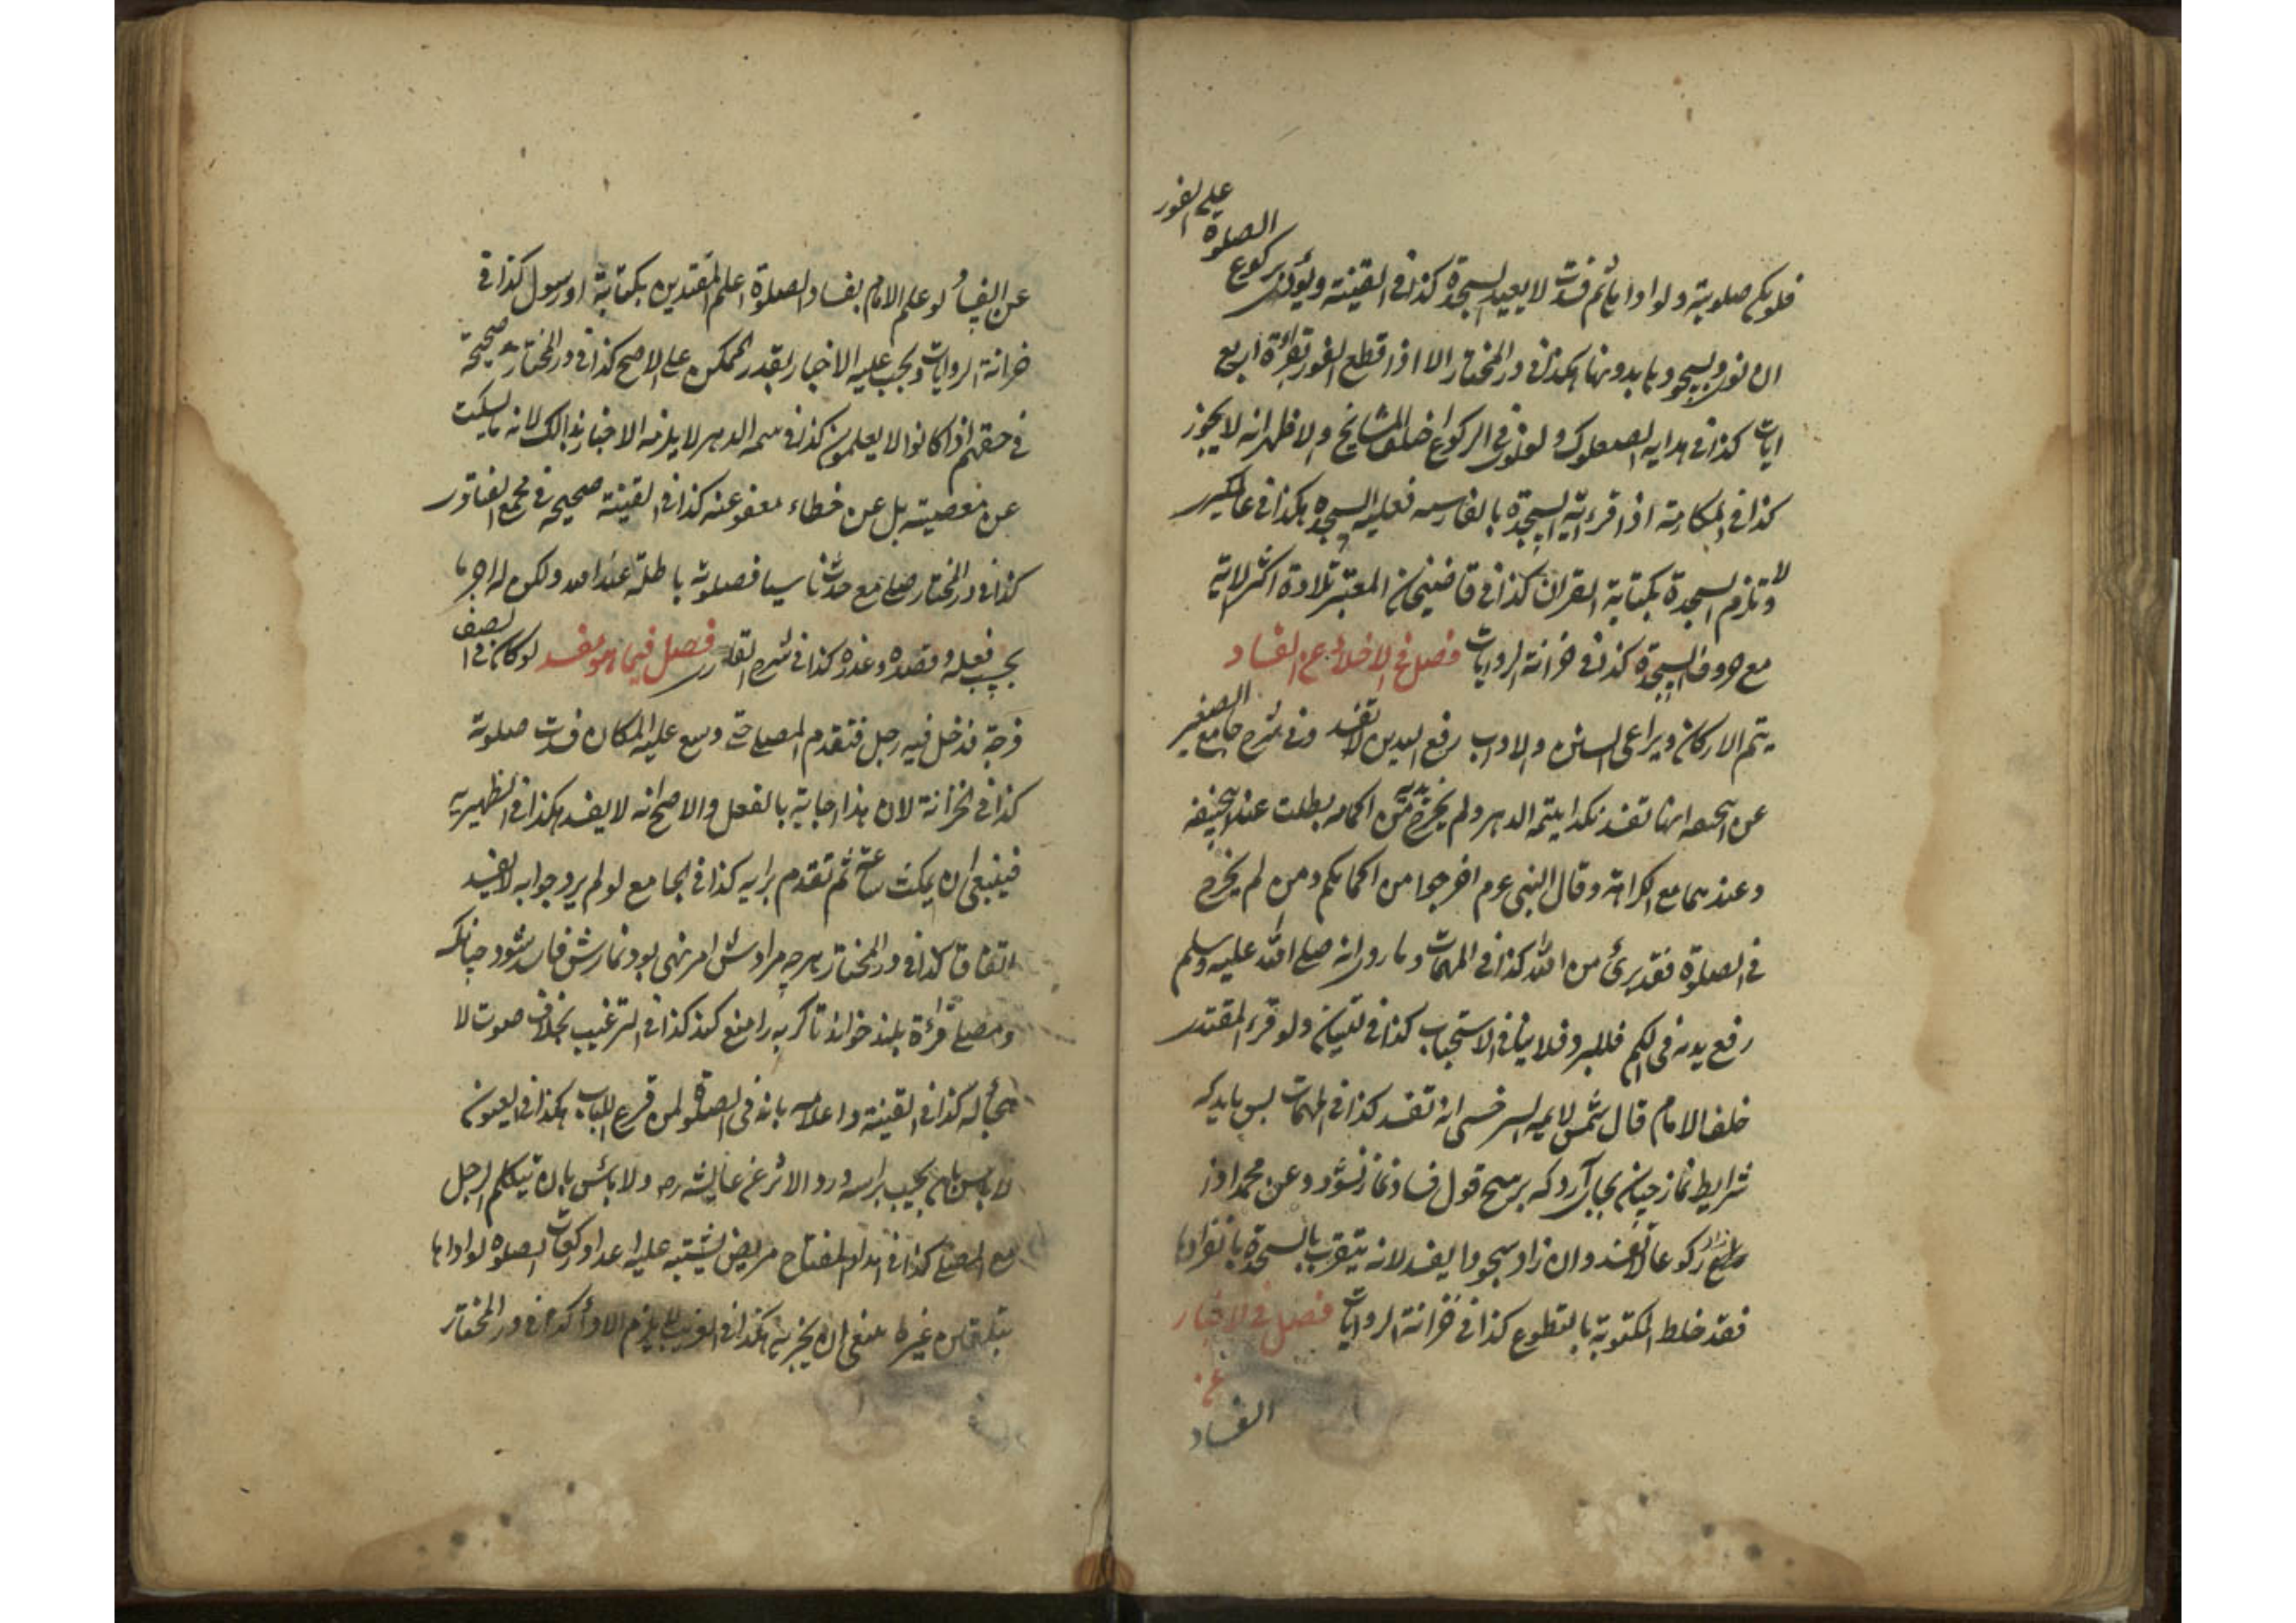 على الفور
الصلوة
فلو يكن صلوتية ولو اداها ثم فسدت لا يعيد السجدة كذا فى القنية ويؤدى بركوع
ان نوى وبسجودها بدونها هكذا فى در المختار الا اذا قطع الفور بقرائة اربع
ايات كذا فى هداية الصعلوك ولو نوى فى الركوع اختلف المشايخ والاظهر انه لا يجوز
كذا فى المكارمة اذا قرء اية السجدة بالفارسية فعليه السجدة هكذا فى عالمكيرى
ولا تلزم السجدة بكتابة القران كذا فى قاضيخان المعتبر تلاوة اكثر الاية
مع حروف السجدة كذا فى خزانة الروايات فصل فى الاخلاء عن الفساد
يتم الاركان ويراعى السنن والاداب رفع اليدين لا تفسد وفى شرح جامع الصغير
عن انها تفسد هكذا يتمة الدهر ولم يخرج يديه من اكمامه بطلت عند ابيحنيفة
وعندهما مع الكراهة وقال النبى عم اخرجوا من اكمامكم ومن لم يخرج
فى الصلوة فقد برئ من الله كذا فى المهمات وما روى انه صلى الله عليه وسلم
رفع يديه فى الكم فللبرد فلا ينافى الاستحباب كذا فى ولو قرء المقتدى
خلف الامام قال شمس الايمه السرخسى انه تفسد كذا فى المهمات پس بايد كه
شرايط نماز چنان بجا آرد كه بر هيچ قول فساد نماز نشود وعن محمد اذا
زاد ركوعا لا تفسد وان زاد سجودا يفسد لانه يتقرب بالسجدة بانفرادها
فقد خلط المكتوبة بالتطوع كذا فى خزانة الروايات فصل فى الاخبار
عن
الفساد
عن الفساد لو علم الامام بفساد الصلوة اعلم المقتدين بكتابة او رسول كذا فى
خزانة الروايات ويجب عليه الاخبار بقدر الممكن على الاصح كذا فى در المختار صحيحة
فى حقهم اذا كانوا لا يعلمون كذا فى يتمة الدهر لا يلزمه الاخبار بذالك لانه ما سكت
عن معصية بل عن خطاء معفو عنه كذا فى القنية صحيحه فى مجمع الفتاوى
كذا فى در المختار صلى مع حدث ناسيا فصلوته باطلة عند الله ولكن له اجر ما
بحسب فعله وقصده وعذره كذا فى شرح القارى فصل فيما هو مفسد لو كان فى الصف
فرجة فدخل فيه رجل فتقدم المصلى حتى وسع عليه المكان فسدت صلوته
كذا فى الخزانة لان هذا اجابة بالفعل والاصح انه لا يفسد هكذا فى الظهيرية
فينبغى ان يمكث ساعة ثم تقدم برايه كذا فى الجامع لو لم يرد جوابه لا تفسد
اتفاقا كذا فى در المختار هرچه مرادش امر نهى بود نمازش فاسد شود چنانكه
مصلى قراءة بلند خواند تا گربه را منع كند كذا فى الترغيب بخلاف صوت لا
هجأ له كذا فى القنية واعلامه بانه فى الصلوة لمن قرع الباب هكذا فى العيون
لا باس بان يجيب براسه ورد الاثر عن عايشه رض ولا بأس بان يتكلم الرجل
مع المصلى كذا فى مريض يشتبه عليه اعداد ركعات الصلوة لو اداها
بتلقين غيره ينبغى ان يجزيه هكذا فى لا يلزم الاداء كذا فى در المختار